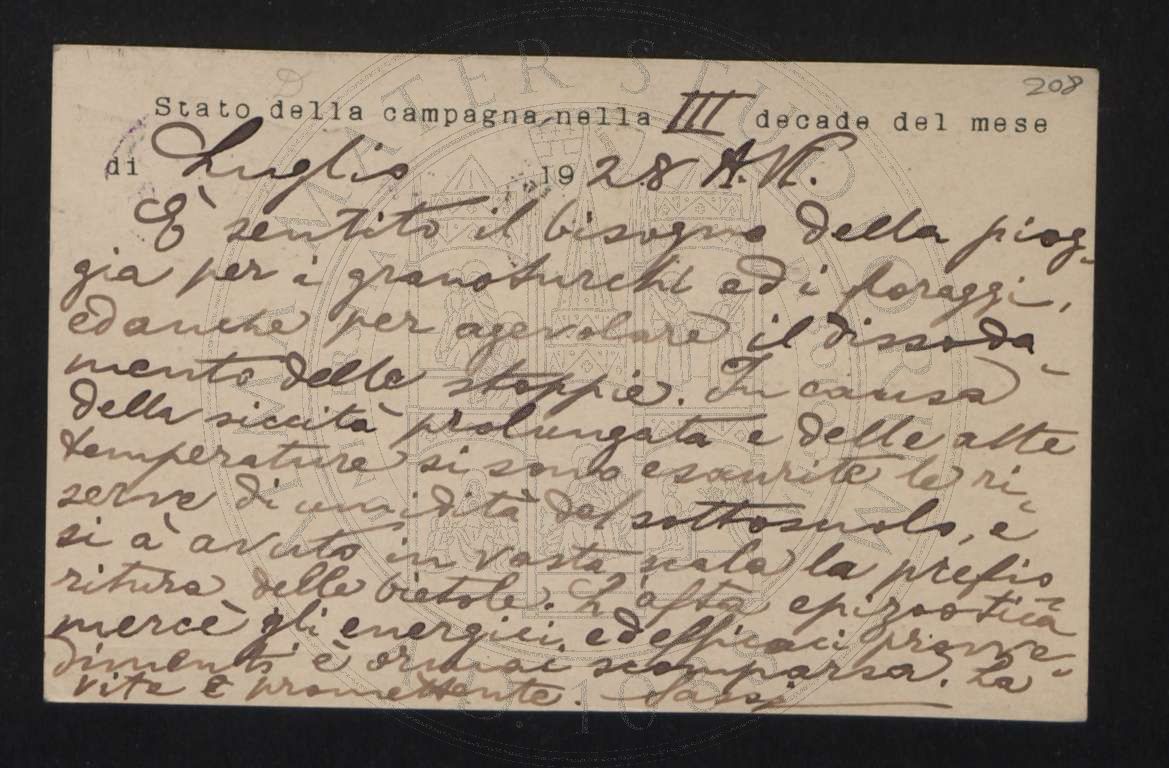 208
Stato della campagna nella III decade del mese
di Luglio 1928 A. VI.
È sentito il bisogno della piog-
gia per i granoturchi ed i foraggi,
ed anche per agevolare il dissoda-
mento delle stoppie. In causa
della siccità prolungata e delle alte
temperature si sono esaurite le ri-
serve di umidità del sottosuolo, e
si à avuto in vasta scala la prefio-
ritura delle bietole. L'afta epizootica
mercè gli energici ed efficaci provve-
dimenti è ormai scomparsa. La
vite è promettente.